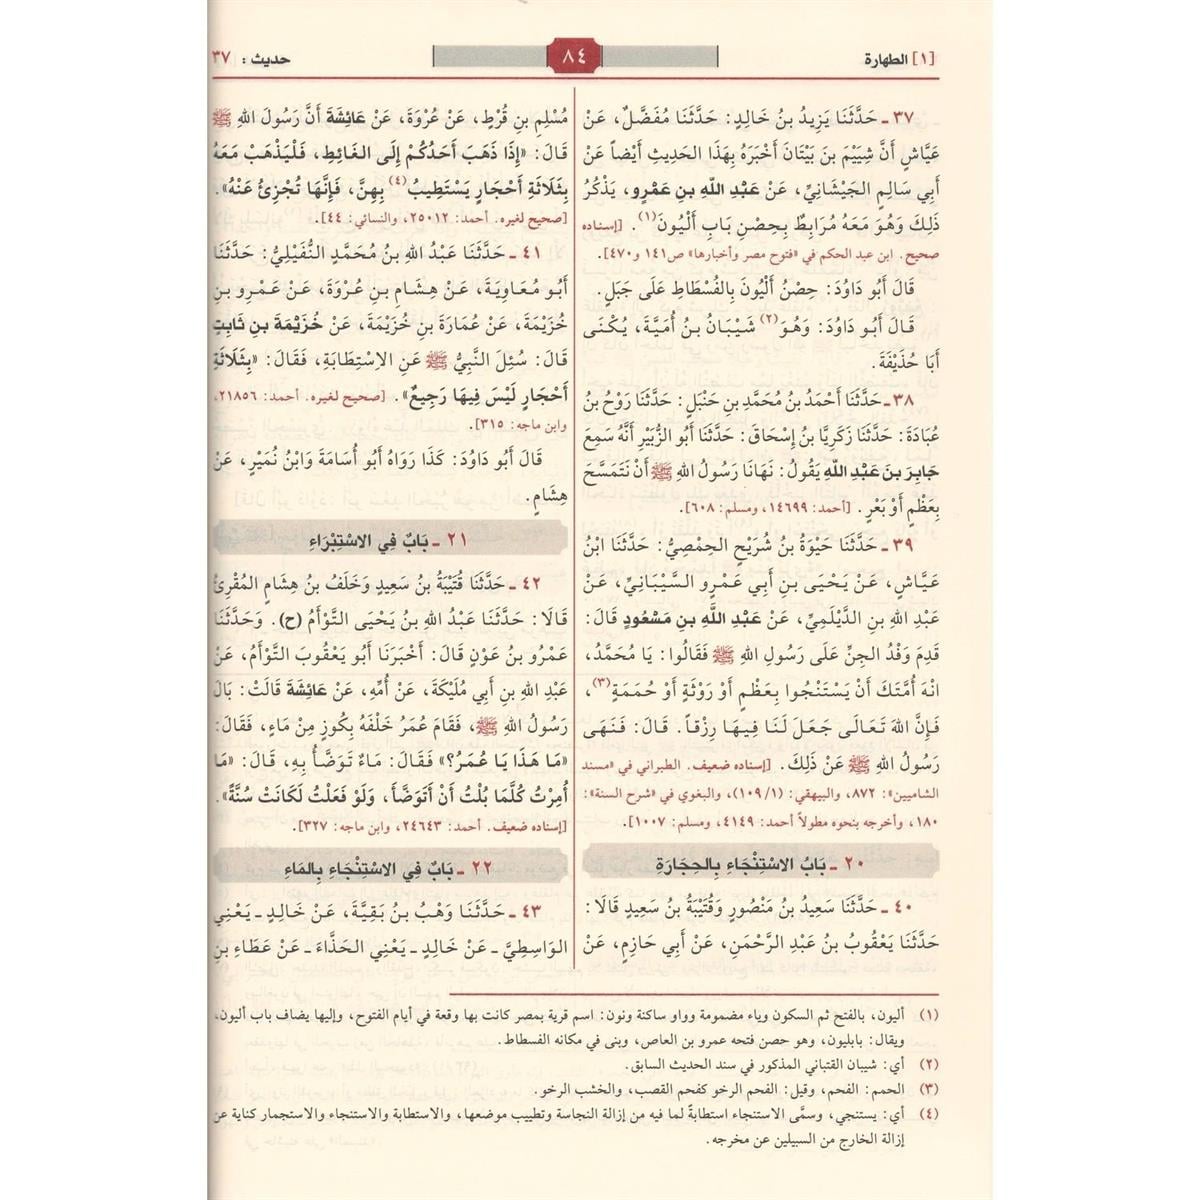 [١] الطهارة
٨٤
حديث : ٣٧
٣٧ ـ حَدَّثَنَا يَزِيدُ بنُ خَالِدٍ: حَدَّثَنَا مُفَضَّلٌ، عَنْ
عَيَّاشٍ أَنَّ شِيَيْمَ بنَ بَيْتَانَ أَخْبَرَهُ بِهَذَا الحَدِيثِ أَيْضاً عَنْ
أَبِي سَالِمٍ الجَيْشَانِيِّ، عَنْ عَبْدِ اللَّهِ بنِ عَمْرٍو، يَذْكُرُ
ذَلِكَ وَهُوَ مَعَهُ مُرَابِطٌ بِحِصْنِ بَابِ أَلْيُونَ(١). [إسناده
صحيح. ابن عبد الحكم في «فتوح مصر وأخبارها» ص١٤١ و٤٧٠].
قَالَ أَبُو دَاوُدَ: حِصْنُ أَلْيُونَ بِالفُسْطَاطِ عَلَى جَبَلٍ.
قَالَ أَبُو دَاوُدَ: وَهُوَ(٢) شَيْبَانُ بنُ أُمَيَّةَ، يُكْنَى
أَبَا حُذَيْفَةَ.
٣٨ ـ حَدَّثَنَا أَحْمَدُ بنُ مُحَمَّدِ بنِ حَنْبَلٍ: حَدَّثَنَا رَوْحُ بنُ
عُبَادَةَ: حَدَّثَنَا زَكَرِيَّا بنُ إِسْحَاقَ: حَدَّثَنَا أَبُو الزُّبَيْرِ أَنَّهُ سَمِعَ
جَابِرَ بنَ عَبْدِ اللَّهِ يَقُولُ: نَهَانَا رَسُولُ اللهِ ﷺ أَنْ نَتَمَسَّحَ
بِعَظْمٍ أَوْ بَعْرٍ. [أحمد: ١٤٦٩٩، ومسلم: ٦٠٨].
٣٩ ـ حَدَّثَنَا حَيْوَةُ بنُ شُرَيْحٍ الحِمْصِيُّ: حَدَّثَنَا ابْنُ
عَيَّاشٍ، عَنْ يَحْيَى بنِ أَبِي عَمْرٍو السَّيْبَانِيِّ، عَنْ
عَبْدِ اللهِ بنِ الدَّيْلَمِيِّ، عَنْ عَبْدِ اللَّهِ بنِ مَسْعُودٍ قَالَ:
قَدِمَ وَفْدُ الجِنِّ عَلَى رَسُولِ اللهِ ﷺ فَقَالُوا: يَا مُحَمَّدُ،
انْهَ أُمَّتَكَ أَنْ يَسْتَنْجُوا بِعَظْمٍ أَوْ رَوْثَةٍ أَوْ حُمَمَةٍ(٣)،
فَإِنَّ اللهَ تَعَالَى جَعَلَ لَنَا فِيهَا رِزْقاً. قَالَ: فَنَهَى
رَسُولُ اللهِ ﷺ عَنْ ذَلِكَ. [إسناده ضعيف. الطبراني في «مسند
الشاميين»: ٨٧٢، والبيهقي: (١/ ١٠٩)، والبغوي في «شرح السنة»:
١٨٠، وأخرجه بنحوه مطولاً أحمد: ٤١٤٩، ومسلم: ١٠٠٧].
٢٠ ـ بَابُ الاسْتِنْجَاءِ بِالحِجَارَةِ
٤٠ ـ حَدَّثَنَا سَعِيدُ بنُ مَنْصُورٍ وَقُتَيْبَةُ بنُ سَعِيدٍ قَالَا:
حَدَّثَنَا يَعْقُوبُ بنُ عَبْدِ الرَّحْمَنِ، عَنْ أَبِي حَازِمٍ، عَنْ
مُسْلِمِ بنِ قُرْطٍ، عَنْ عُرْوَةَ، عَنْ عَائِشَةَ أَنَّ رَسُولَ اللهِ ﷺ
قَالَ: «إِذَا ذَهَبَ أَحَدُكُمْ إِلَى الغَائِطِ، فَلْيَذْهَبْ مَعَهُ
بِثَلَاثَةِ أَحْجَارٍ يَسْتَطِيبُ(٤) بِهِنَّ، فَإِنَّهَا تُجْزِئُ عَنْهُ».
[صحيح لغيره. أحمد: ٢٥٠١٢، والنسائي: ٤٤].
٤١ ـ حَدَّثَنَا عَبْدُ اللهِ بنُ مُحَمَّدٍ النُّفَيْلِيُّ: حَدَّثَنَا
أَبُو مُعَاوِيَةَ، عَنْ هِشَامِ بنِ عُرْوَةَ، عَنْ عَمْرِو بنِ
خُزَيْمَةَ، عَنْ عُمَارَةَ بنِ خُزَيْمَةَ، عَنْ خُزَيْمَةَ بنِ ثَابِتٍ
قَالَ: سُئِلَ النَّبِيُّ ﷺ عَنِ الاِسْتِطَابَةِ، فَقَالَ: «بِثَلَاثَةِ
أَحْجَارٍ لَيْسَ فِيهَا رَجِيعٌ». [صحيح لغيره. أحمد: ٢١٨٥٦،
وابن ماجه: ٣١٥].
قَالَ أَبُو دَاوُدَ: كَذَا رَوَاهُ أَبُو أُسَامَةَ وَابْنُ نُمَيْرٍ، عَنْ
هِشَامٍ.
٢١ ـ بَابٌ فِي الاسْتِبْرَاءِ
٤٢ ـ حَدَّثَنَا قُتَيْبَةُ بنُ سَعِيدٍ وَخَلَفُ بنُ هِشَامٍ المُقْرِئُ
قَالَا: حَدَّثَنَا عَبْدُ اللهِ بنُ يَحْيَى التَّوْأَمُ (ح). وَحَدَّثَنَا
عَمْرُو بنُ عَوْنٍ قَالَ: أَخْبَرَنَا أَبُو يَعْقُوبَ التَّوْأَمُ، عَنْ
عَبْدِ اللهِ بنِ أَبِي مُلَيْكَةَ، عَنْ أُمِّهِ، عَنْ عَائِشَةَ قَالَتْ: بَالَ
رَسُولُ اللهِ ﷺ، فَقَامَ عُمَرُ خَلْفَهُ بِكُوزٍ مِنْ مَاءٍ، فَقَالَ:
«مَا هَذَا يَا عُمَرُ؟» فَقَالَ: مَاءٌ تَوَضَّأُ بِهِ، قَالَ: «مَا
أُمِرْتُ كُلَّمَا بُلْتُ أَنْ أَتَوَضَّأَ، وَلَوْ فَعَلْتُ لَكَانَتْ سُنَّةً».
[إسناده ضعيف. أحمد: ٢٤٦٤٣، وابن ماجه: ٣٢٧].
٢٢ ـ بَابٌ فِي الاسْتِنْجَاءِ بِالمَاءِ
٤٣ ـ حَدَّثَنَا وَهْبُ بنُ بَقِيَّةَ، عَنْ خَالِدٍ ـ يَعْنِي
الوَاسِطِيَّ ـ عَنْ خَالِدٍ ـ يَعْنِي الحَذَّاءَ ـ عَنْ عَطَاءِ بنِ
(١) أليون، بالفتح ثم السكون وياء مضمومة وواو ساكنة ونون: اسم قرية بمصر كانت بها وقعة في أيام الفتوح، وإليها يضاف باب أليون،
ويقال: بابليون، وهو حصن فتحه عمرو بن العاص، وبنى في مكانه الفسطاط.
(٢) أي: شيبان القتباني المذكور في سند الحديث السابق.
(٣) الحمم: الفحم، وقيل: الفحم الرخو كفحم القصب، والخشب الرخو.
(٤) أي: يستنجي، وسمَّى الاستنجاء استطابةً لما فيه من إزالة النجاسة وتطييب موضعها، والاستطابة والاستنجاء والاستجمار كناية عن
إزالة الخارج من السبيلين عن مخرجه.